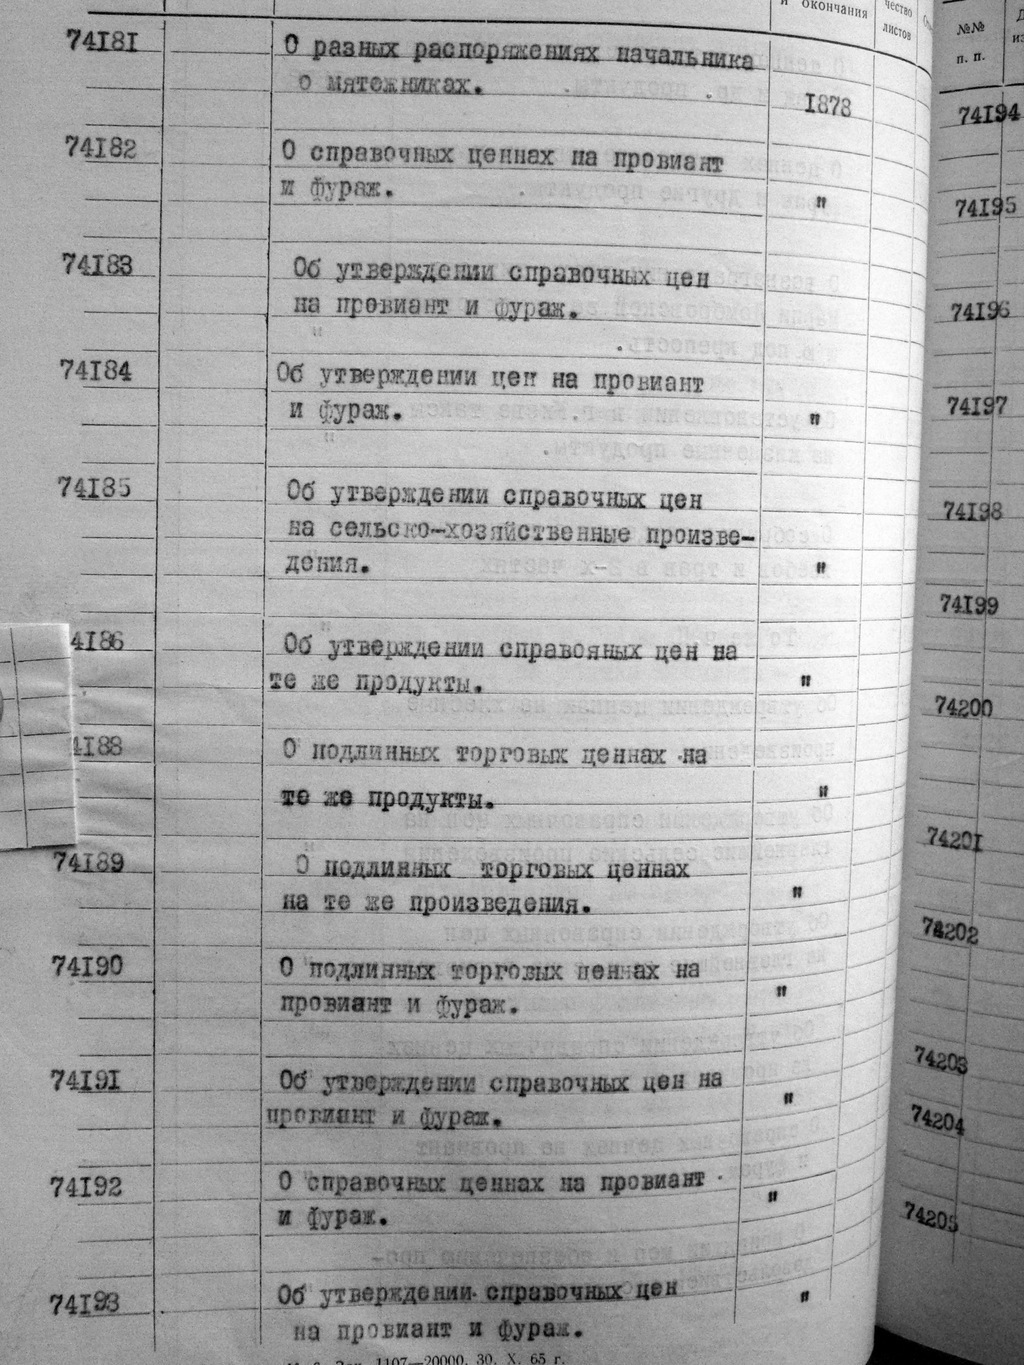 и окончания
чество
листов
74181 О разных распоряжениях начальника
о мятежниках. 1878
74182 О справочных ценнах на провиант
и фураж. "
74183 Об утверждении справочных цен
на провиант и фураж.
74184 Об утверждении цен на провиант
и фураж. "
74185 Об утверждении справочных цен
на сельско-хозяйственные произве-
дения. "
4186 Об утверждении справояных цен на
те же продукты. "
4188 О подлинных торговых ценнах на
те же продукты. "
74189 О подлинных торговых ценнах
на те же произведения. "
74190 О подлинных торговых ценнах на
провиант и фураж. "
74191 Об утверждении справочных цен на
провиант и фураж. "
74192 О справочных ценнах на провиант
и фураж. "
74193 Об утверждении справочных цен "
на провиант и фураж.
1107—20000. 30. X. 65 г.
№№
п. п.
74194
74195
74196
74197
74198
74199
74200
74201
74202
74203
74204
74205